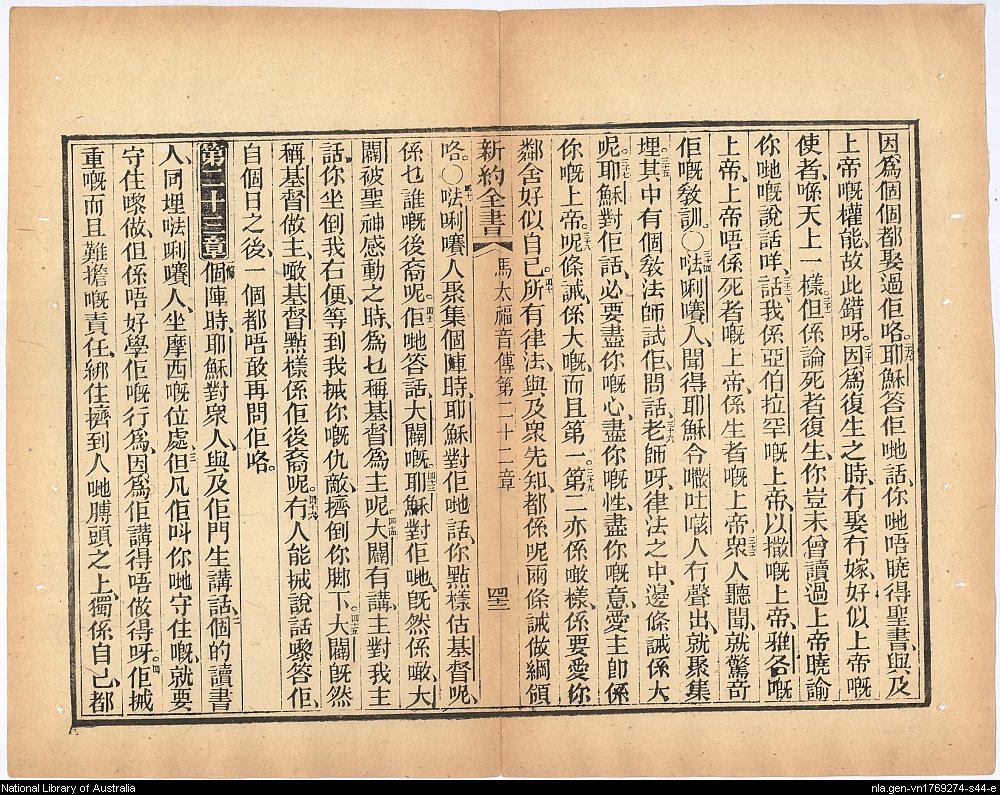 因爲個個都娶過佢咯。二十九耶穌答佢哋話、你哋唔曉得聖書、與及
上帝嘅權能、故此錯呀。三十因爲復生之時、冇娶冇嫁、好似上帝嘅
使者、喺天上一樣。三十一但係論死者復生、你豈未曾讀過上帝曉諭
你哋嘅說話咩、三十二話我係亞伯拉罕嘅上帝、以撒嘅上帝、雅各嘅
上帝、上帝唔係死者嘅上帝、係生者嘅上帝。三十三衆人聽聞、就驚奇
佢嘅敎訓。○三十四㗒唎賽人、聞得耶穌令撒吐㗨人冇聲出、就聚集
埋。三十五其中有個敎法師試佢、問話、三十六老師呀、律法之中、邊條誡係大
呢。三十七耶穌對佢話、必要盡你嘅心、盡你嘅性、盡你嘅意、愛主卽係
你嘅上帝。三十八呢條誡、係大嘅、而且第一。三十九第二亦係噉樣、係要愛你
鄰舍好似自己。四十所有律法、與及衆先知、都係呢兩條誡做綱領
新約全書 馬太福音傳第二十二章 四三
咯。○四十一㗒唎賽人聚集個陣時、耶穌對佢哋話、你點樣估基督呢、
係乜誰嘅後裔呢。四十二佢哋答話、大闢嘅。四十三耶穌對佢哋、旣然係噉、大
闢被聖神感動之時、爲乜稱基督爲主呢、四十四大闢有講、主對我主
話、你坐倒我右便、等到我摵你嘅仇敵、擠倒你脚下。四十五大闢旣然
稱基督做主、噉基督點樣係佢後裔呢。四十六冇人能摵說話嚟答佢、
自個日之後、一個都唔敢再問佢咯。
第二十三章 個陣時、耶穌對衆人、與及佢門生講話、二個的讀書
人、同埋㗒唎賽人、坐摩西嘅位處、三但凡佢呌你哋守住嘅、就要
守住嚟做、但係唔好學佢嘅行爲、因爲佢講得唔做得呀。四佢摵
重嘅而且難擔嘅責任、綁住擠到人哋膊頭之上、獨係自己、都
National Library of Australia
nla.gen-vn1769274-s44-e